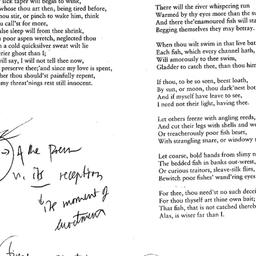 sick taper will begin to wink,
whose thou art then, being tired before,
thou stir, or pinch to wake him, think
call'st for more,
false sleep will from thee shrink,
poor aspen wretch, neglected thou
a cold quicksilver sweat wilt lie
ghost than I;
will say, I will not tell thee now,
preserve thee; and since my love is spent,
thou should'st painfully repent,
my threat'nings rest still innocent.
the Poem
vs. its reception
its moment of
There will the river whispering run
Warmed by thy eyes more than the su
And there the enamoured fish will sta
Begging themselves they may betray.
When thou wilt swim in that live bat
Each fish, which every channel hath,
Will amorously to thee swim,
Gladder to catch thee, than thou him
If thou, to be so seen, beest loath,
By sun, or moon, thou dark'nest bot
And if myself have leave to see,
I need not their light, having thee.
Let others freeze with angling reeds,
And cut their legs with shells and we
Or treacherously poor fish beset,
With strangling snare, or windowy n
Let coarse, bold hands from slimy n
The bedded fish in banks out-wrest,
Or curious traitors, sleave-silk flies,
Bewitch poor fishes' wand'ring eyes
For thee, thou need'st no such decei
For thou thyself art thine own bait;
That fish, that is not catched thereb
Alas, is wiser far than I.